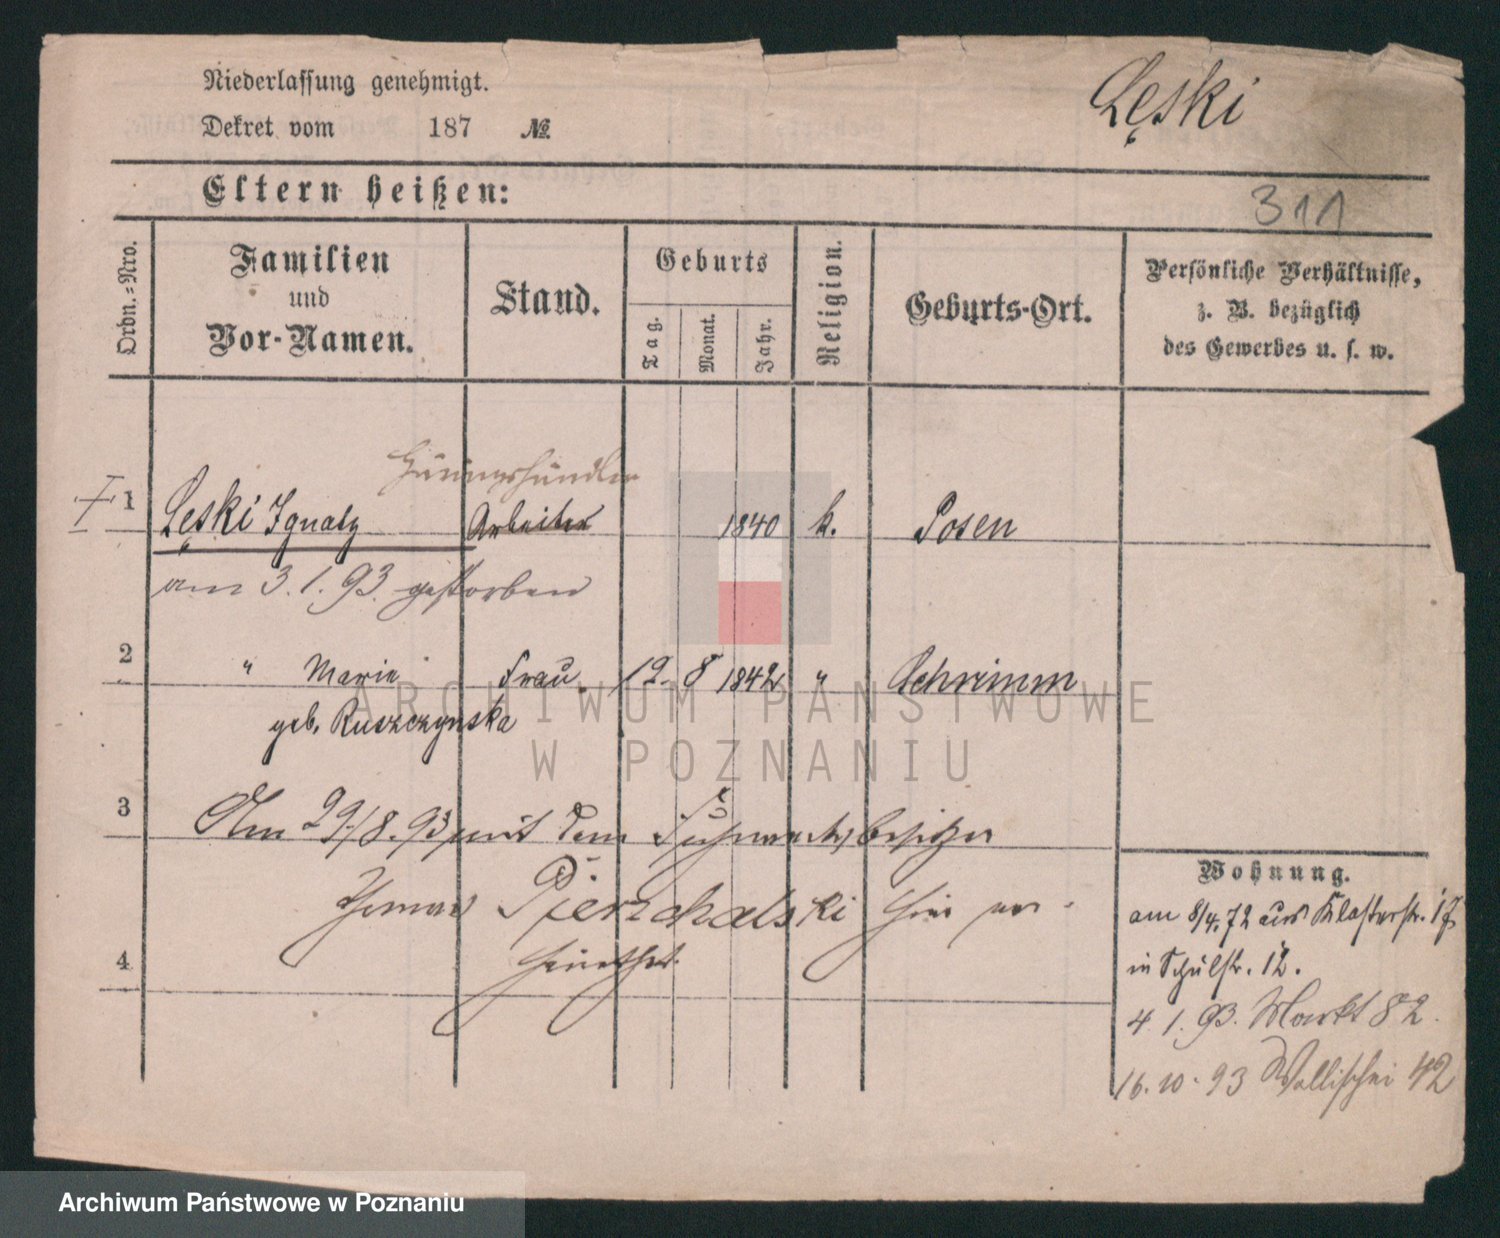 Niederlassung genehmigt.
Łęski
Dekret vom 187 №
Eltern heißen:
311
Ordn.-Nro.
Familien
und
Vor-Namen.
Stand.
Geburts
Tag.
Monat.
Jahr.
Religion.
Geburts-Ort.
Persönliche Verhältnisse,
z. B. bezüglich
des Gewerbes u. s. w.
1 Łęski Ignatz Arbeiter 1840 k. Posen
am 3.1.93. gestorben
2 " Marie Frau 12. 8 1842 " Schrimm
geb. Ruszczynska
3 Am 29/8.93 mit dem Fuhrwerksbesitzer
Thomas Pierzchalski hier ver-
4 heirathet.
Wohnung.
am 8/4.72 aus Klosterstr. 17
in Schulstr. 12.
4 1. 93. Markt 82.
16.10.93 Wallischei 42
ARCHIWUM PAŃSTWOWE
W POZNANIU
Archiwum Państwowe w Poznaniu